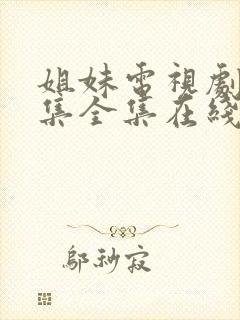 姐妹電視劇
集全集在綫
鄔秘寂